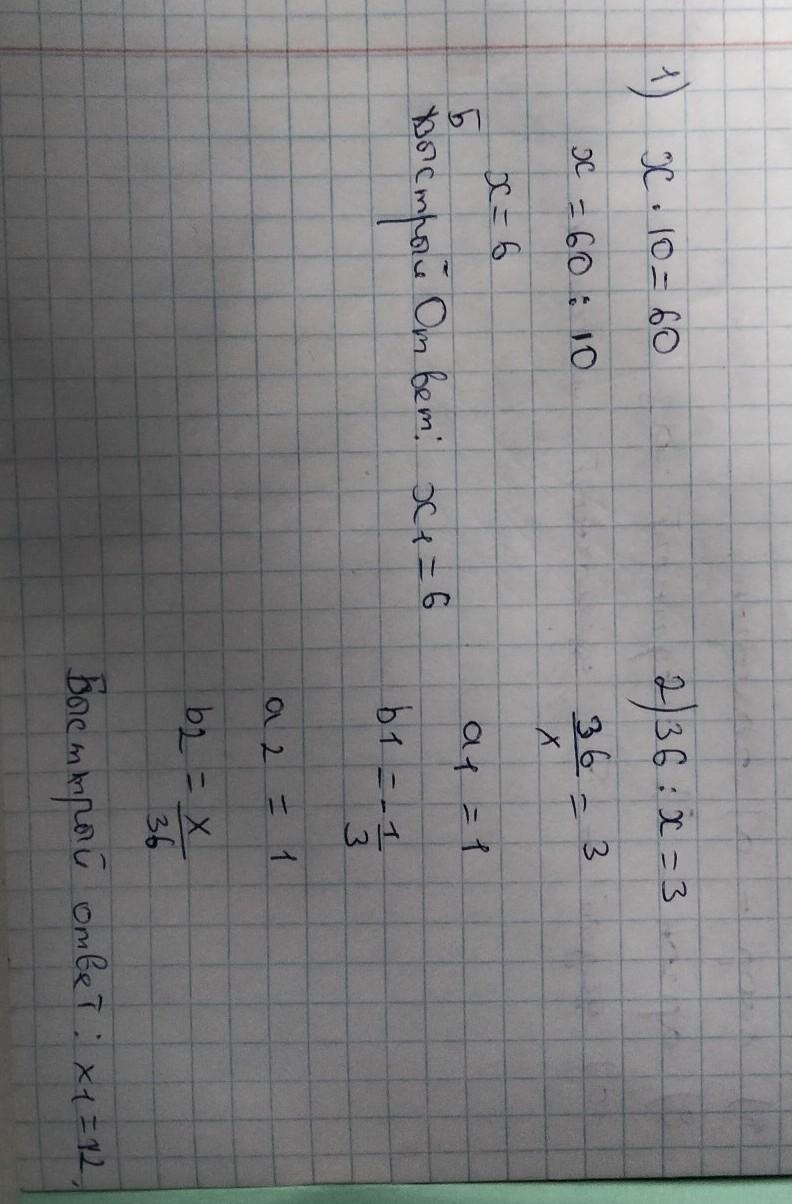 1) x · 10 = 60
x = 60 : 10
x = 6
Быстрый Ответ: x1 = 6
2) 36 : x = 3
36/x = 3
a1 = 1
b1 = -1/3
a2 = 1
b2 = x/36
Быстрый ответ: x1 = 12,